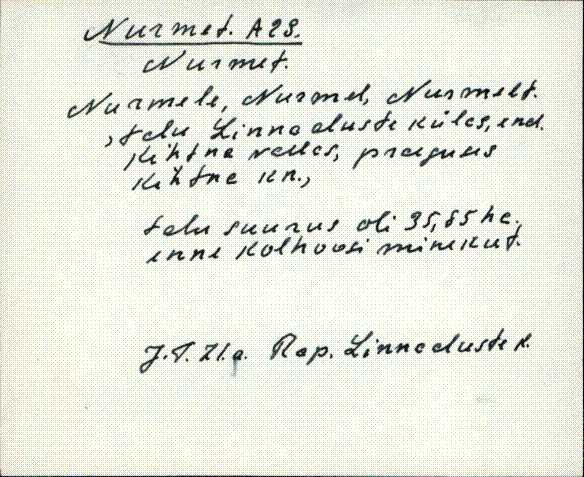 Nurmet. A29.
Nurmet.
Nurmele, Nurmel, Nurmelt.
, talu Linnaaluste külas, end.
Kehtna vallas, praeguses
Kehtna kn.,
talu suurus oli 35,85 ha.
enne kolhoosi minekut.
J.T. 71.a. Rap. Linnaaluste k.